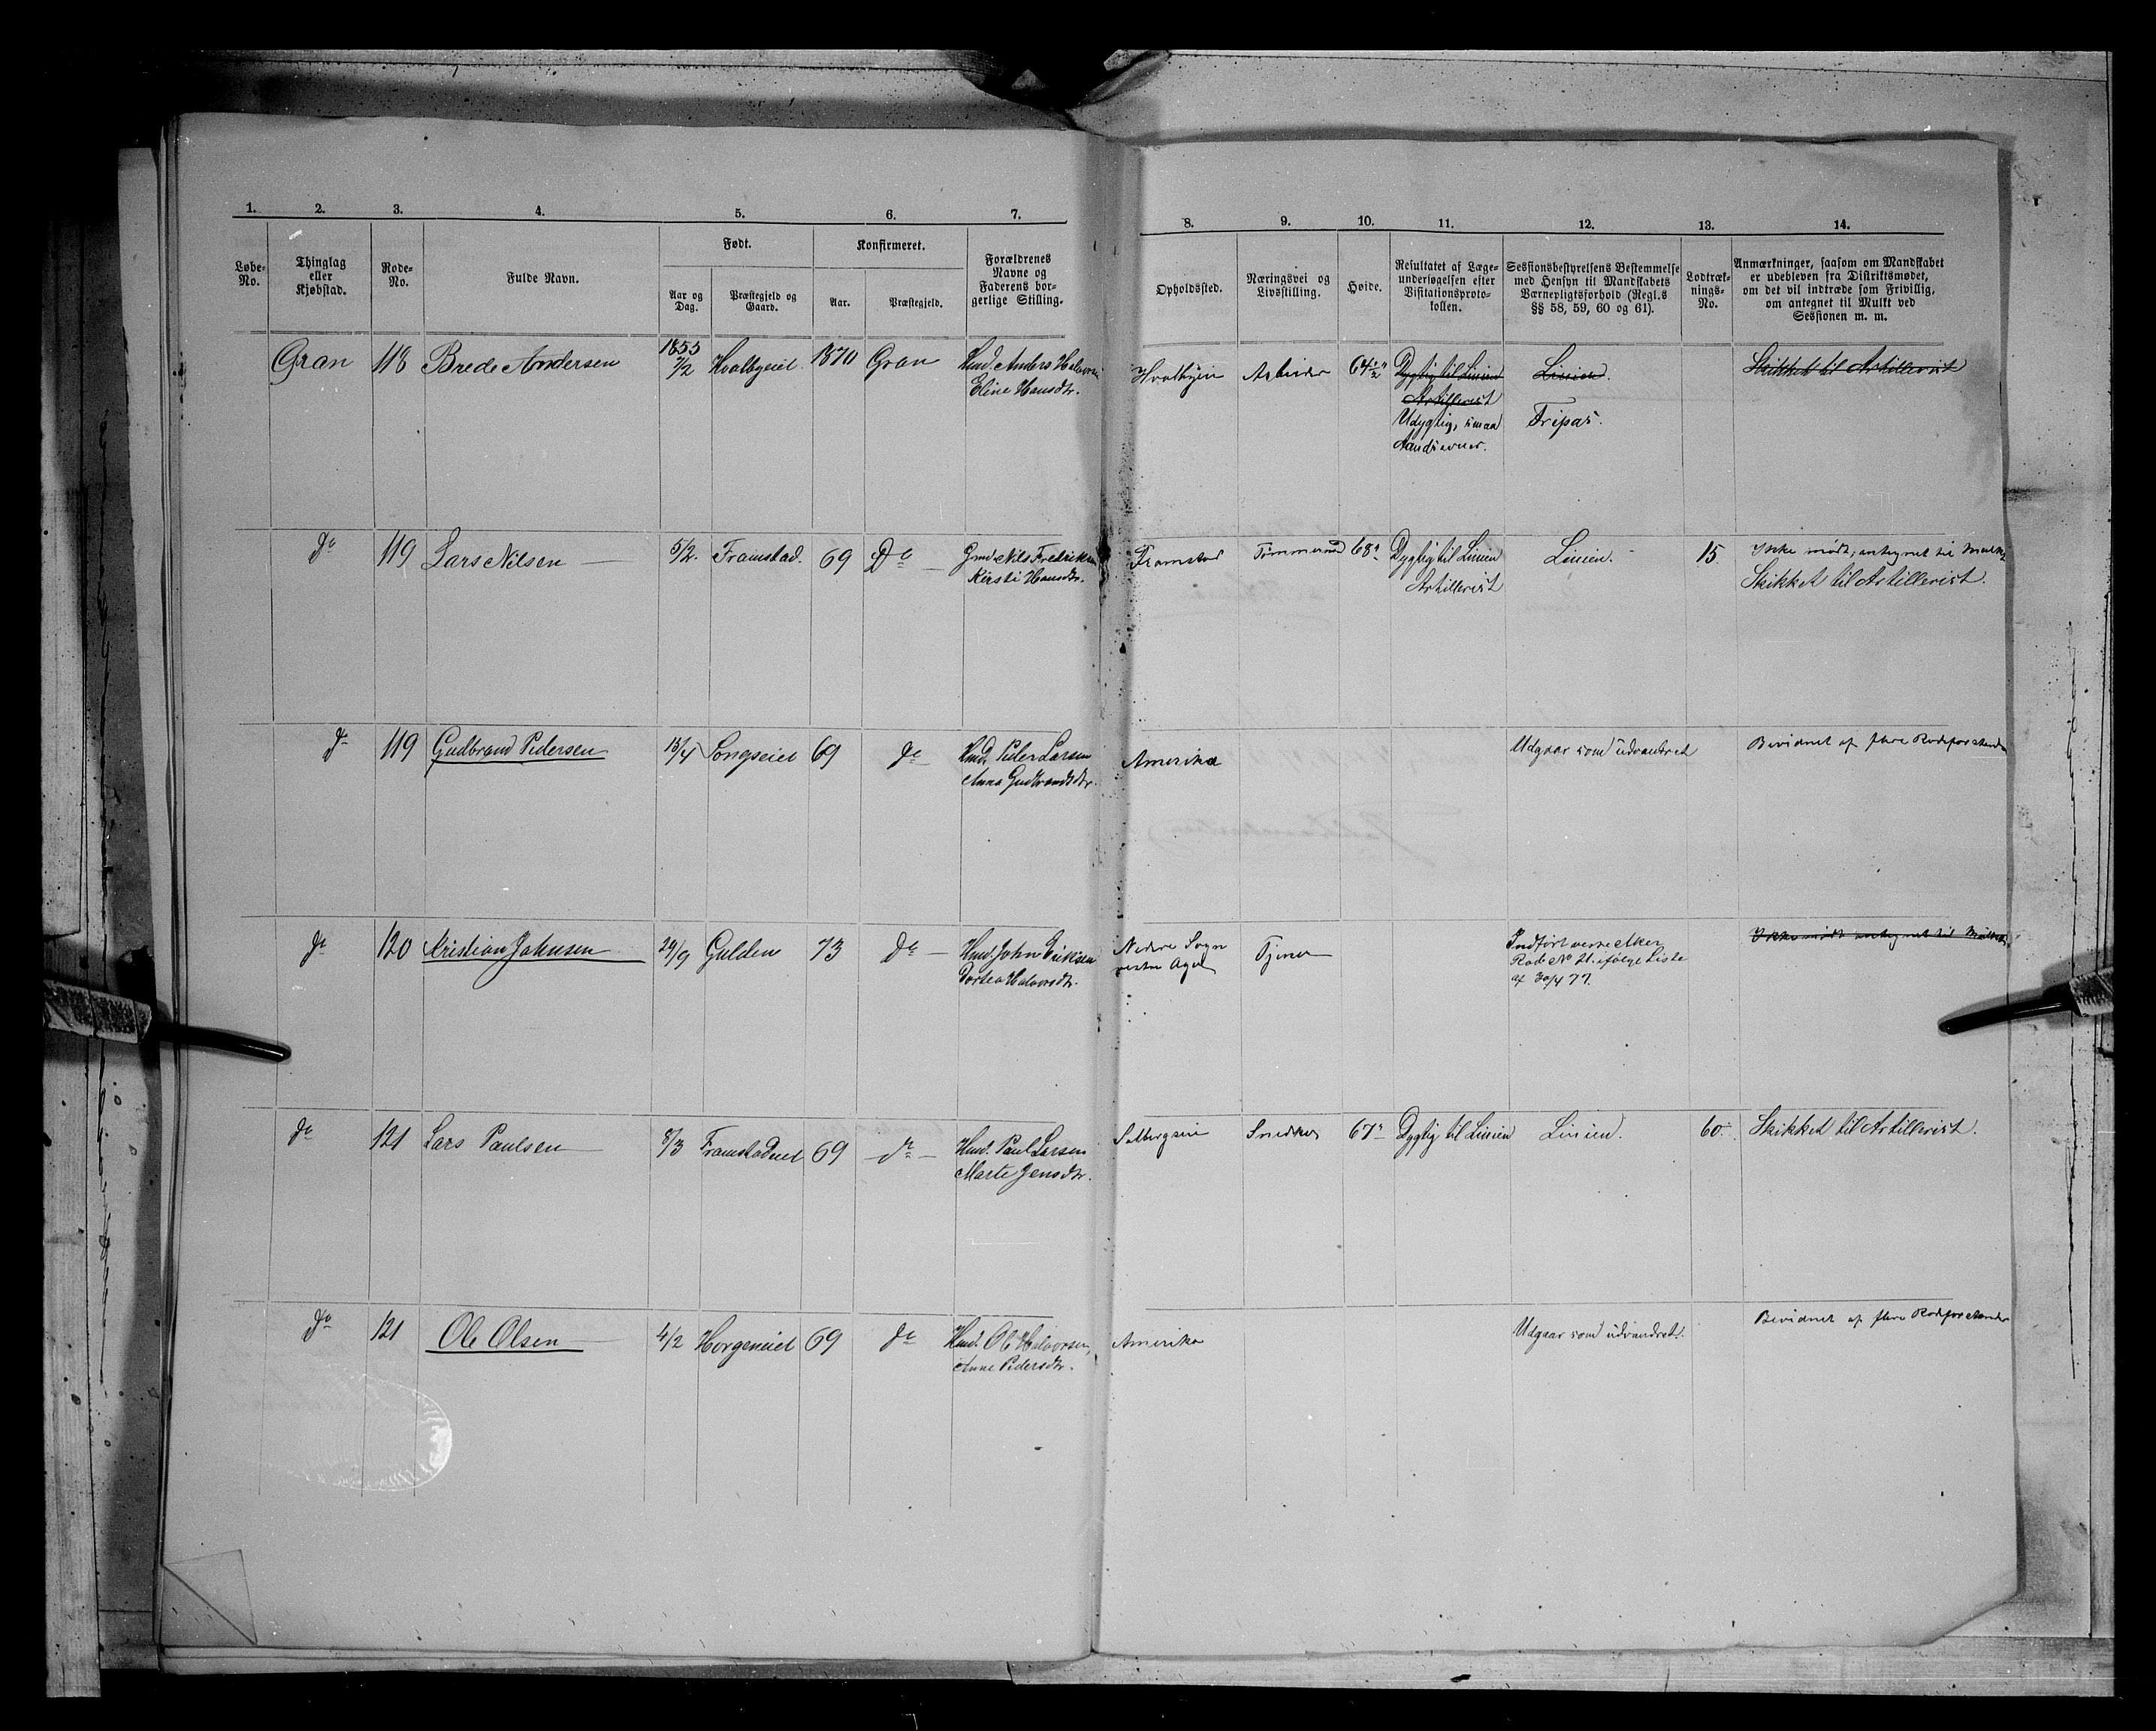 1. 2. 3. 4. 5. 6. 7.
8. 9. 10. 11. 12. 13. 14.
Løbe-
No.
Thinglag
eller
Kjøbstad.
Rode-
No.
Fulde Navn.
Født.
Aar og
Dag.
Præstegjeld og
Gaard.
Konfirmeret.
Aar.
Præstegjeld.
Forældrenes
Navne og
Faderens bor-
gerlige Stilling.
Opholdssted.
Næringsvei og
Livsstilling.
Høide.
Resultatet af Læge-
undersøgelsen efter
Visitationsproto-
kollen.
Sessionsbestyrelsens Bestemmelse
med Hensyn til Mandskabets
Værnepligtsforhold (Regl.s
§§ 58, 59, 60 og 61).
Lodtræk-
nings-
No.
Anmærkninger, saasom om Mandskabet
er udebleven fra Distriktsmødet,
om det vil indtræde som Frivillig,
om antegnet til Mulkt ved
Sessionen m. m.
Gran
118
Brede Andersen
1855
7/2
Hvalbyeiet
1870
Gran
Hmd. Anders Halvorsen
Eline Hansdtr.
Hvalbyeie
Arbeider
64½"
Dygtig til Linien
Artillerist
Udygtig, smaa
Aandsevner.
Linien.
Fripas.
Skikket til Artillerist
Do
119
Lars Nilsen
5/2.
Framstad.
69
Do
Gmd. Nils Fredriksen
Kirsti Hansdtr.
Framstad
Tømmermd
68"
Dygtig til Linien
Artillerist
Linien.
15
Ikke mødt, antegnet til Mulkt
Skikket til Artillerist.
Do
119
Gudbrand Pedersen
15/4
Longseiet
69
do
Hmd. Peder Larsen
Anna Gudbrandsdtr.
Amerika
Udgaar som udvandret
Bevidnet af flere Rodeforstander
do
120
Kristian Johnsen
29/9
Gulden
73
Do
Hmd. John Eriksen
Dortea Halvorsdtr.
Nedre Sogn
vestre Agel
Tjener
Indført vestre Aker
Rode No 21. ifølge Liste
af 30/4 77.
Ikke mødt antegnet til Mulkt
do
121
Lars Paulsen
8/3
Framstadeiet
69
do
Hmd. Paul Larsen
Marte Jensdtr.
Solbergseie
Snedker
67"
Dygtig til Linien
Linien.
60
Skikket til Artillerist.
do
121
Ole Olsen
4/2
Horgeneiet
69
do
Hmd. Ole Halvorsen,
Anne Pedersdtr.
Amerika
Udgaar som udvandret.
Bevidnet af flere Rodeforstander